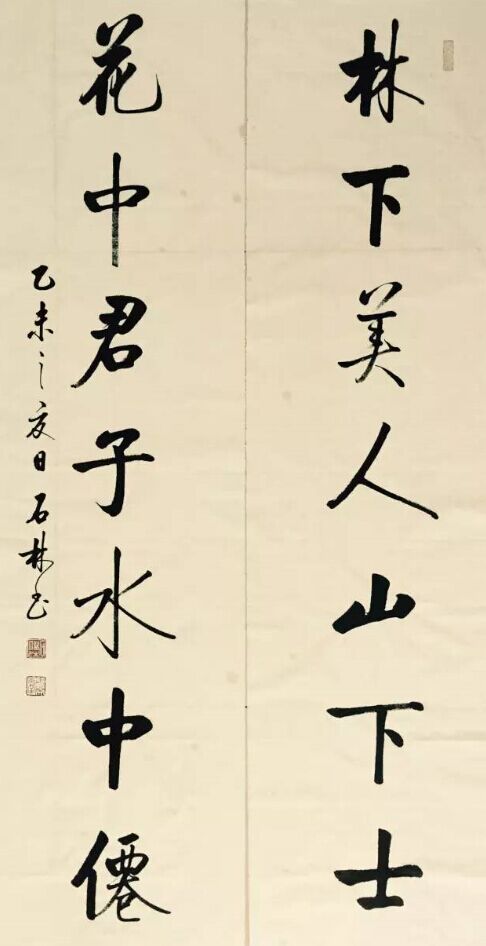 林下美人山下士
花中君子水中僊
乙未之夏日石林书